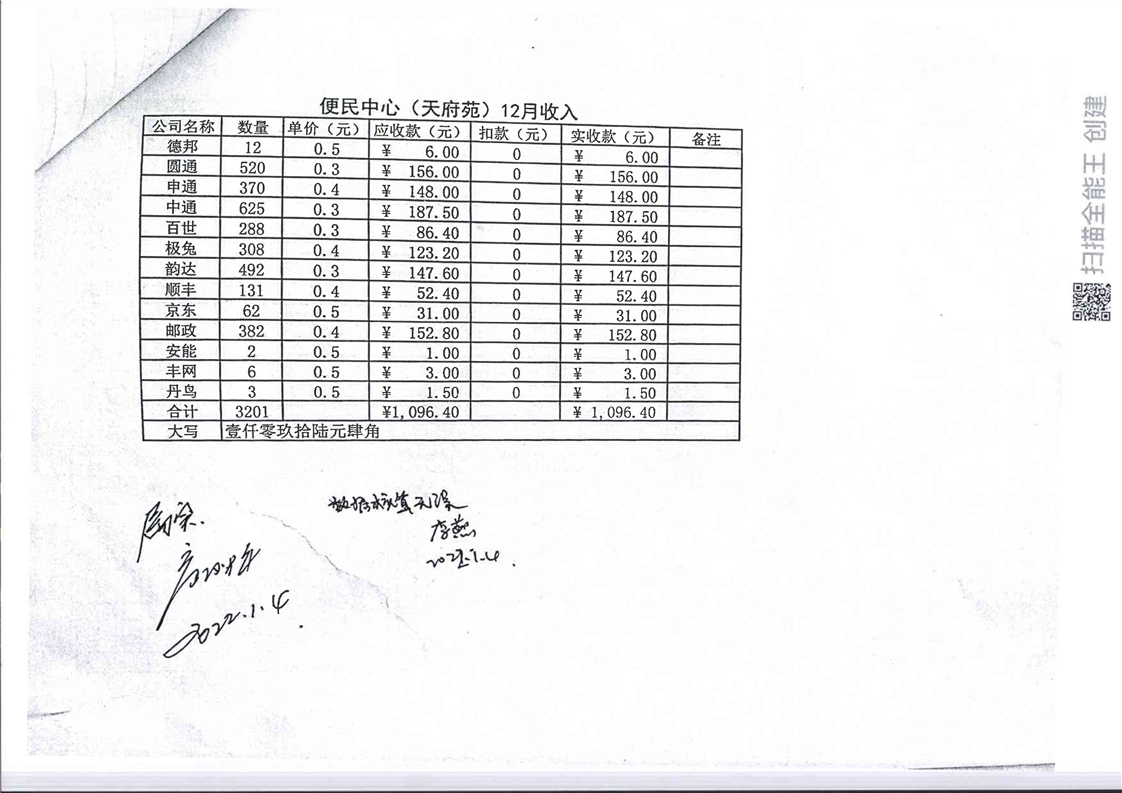 便民中心（天府苑）12月收入
公司名称 数量 单价（元） 应收款（元） 扣款（元） 实收款（元） 备注
德邦 12 0.5 ¥ 6.00 0 ¥ 6.00
圆通 520 0.3 ¥ 156.00 0 ¥ 156.00
申通 370 0.4 ¥ 148.00 0 ¥ 148.00
中通 625 0.3 ¥ 187.50 0 ¥ 187.50
百世 288 0.3 ¥ 86.40 0 ¥ 86.40
极兔 308 0.4 ¥ 123.20 0 ¥ 123.20
韵达 492 0.3 ¥ 147.60 0 ¥ 147.60
顺丰 131 0.4 ¥ 52.40 0 ¥ 52.40
京东 62 0.5 ¥ 31.00 0 ¥ 31.00
邮政 382 0.4 ¥ 152.80 0 ¥ 152.80
安能 2 0.5 ¥ 1.00 0 ¥ 1.00
丰网 6 0.5 ¥ 3.00 0 ¥ 3.00
丹鸟 3 0.5 ¥ 1.50 0 ¥ 1.50
合计 3201 ¥1,096.40 ¥ 1,096.40
大写 壹仟零玖拾陆元肆角
数据核算无误
李燕
2022.1.4.
属实.
2022.1.4
扫描全能王 创建